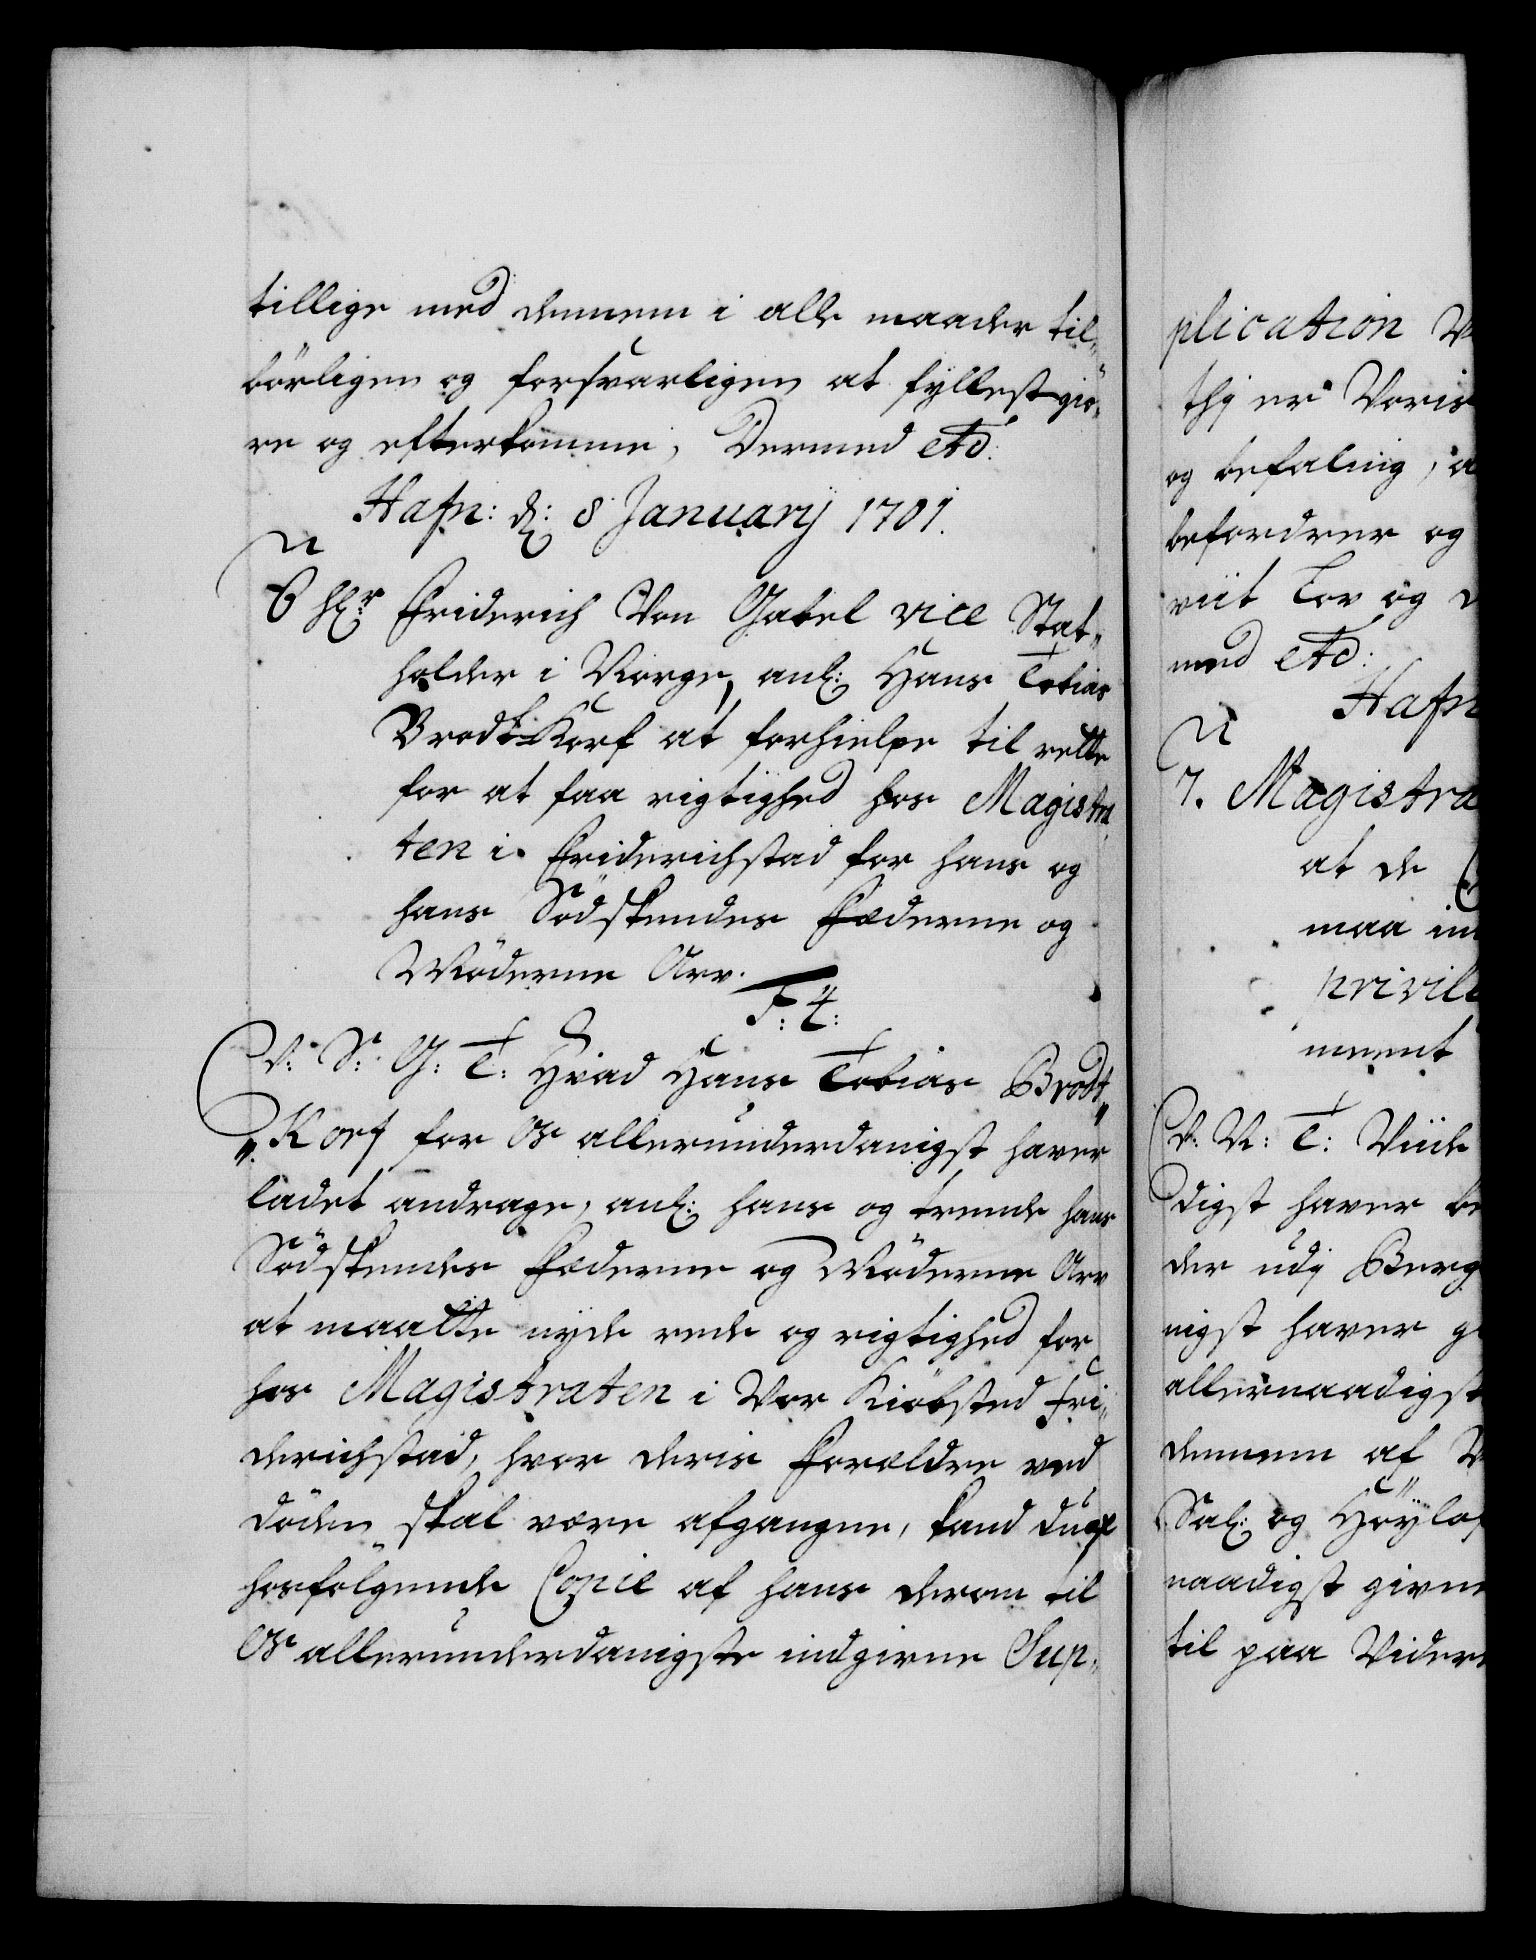 tillige med dennem i alle maader til„
börligen og forsvarligen at fyllestgiö„
re og efterkomme, Dermed etc:
Hafn: d: 8 January 1701.
6 Hr Friderich Von Gabel vice Stat„
holder i Norge, anl: Hans Tobias
Brodtkorf at forhielpe til rette
for at faa rigtighed hos Magistra„
ten i Friderichstad for hans og
hans Södskendes Fæderne og
Möderne Arv.
F: 4:
V: S: G: T: Hvad Hans Tobias Brodt„
„Korf for Os allerunderdanigst haver
ladet andrage, anl: hans og trende hans
Södskendes Fæderne og Möderne Arv
at maatte nyde rede og rigtighed for
hos Magistraten i Vor Kiöbsted Fri„
derichstad, hvor deris Forældre ved
döden skal være afgangne, kand I af
hosfölgende Copie af hans derom til
Os allerunderdanigste indgivne Sup„
plication V
thj er Voris
og befaling, a
befordrer og
viit Lov og
med etc:
Hafn
7. Magistra
at de
maa in
privile
ment
V: N: T: Viide
digst haver be
der udj Berg
nigst haver g
allernaadigst
dennem af V
Sal: og Höylof
naadigst givne
til paa Videre